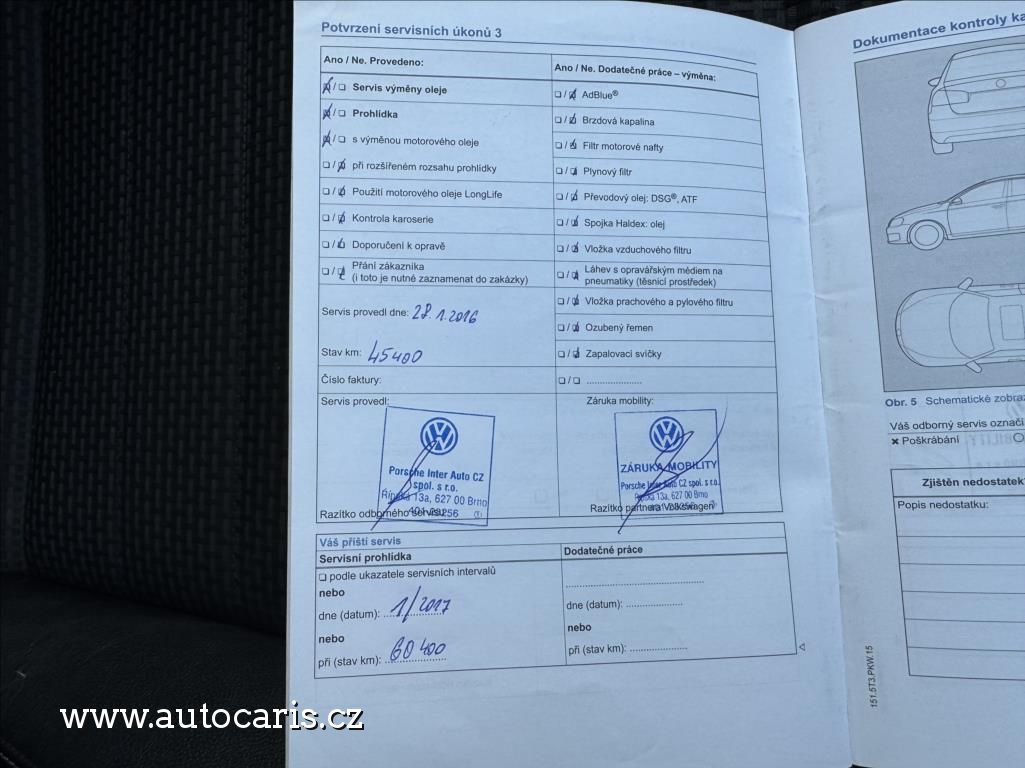 Potvrzení servisních úkonů 3
Ano / Ne. Provedeno:
Servis výměny oleje
Prohlídka
s výměnou motorového oleje
při rozšířeném rozsahu prohlídky
Použití motorového oleje LongLife
Kontrola karoserie
Doporučení k opravě
Přání zákazníka
(i toto je nutné zaznamenat do zakázky)
Servis provedl dne: 28.1.2016
Stav km: 45400
Číslo faktury:
Ano / Ne. Dodatečné práce – výměna:
AdBlue®
Brzdová kapalina
Filtr motorové nafty
Plynový filtr
Převodový olej: DSG®, ATF
Spojka Haldex: olej
Vložka vzduchového filtru
Láhev s opravářským médiem na
pneumatiky (těsnicí prostředek)
Vložka prachového a pylového filtru
Ozubený řemen
Zapalovací svíčky
Servis provedl:
Porsche Inter Auto CZ
spol. s r.o.
Řípská 13a, 627 00 Brno
Razítko odborného servisu
Záruka mobility:
ZÁRUKA MOBILITY
Porsche Inter Auto CZ spol. s r.o.
Řípská 13a, 627 00 Brno
Razítko partnera Volkswagen
Váš příští servis
Servisní prohlídka
podle ukazatele servisních intervalů
nebo
dne (datum): 1/2017
nebo
při (stav km): 60 400
Dodatečné práce
dne (datum):
nebo
při (stav km):
151.5T3.PKW.15
Dokumentace kontroly ka
Obr. 5 Schematické zobra
Váš odborný servis označí
× Poškrábání
Zjištěn nedostatek
Popis nedostatku:
www.autocaris.cz